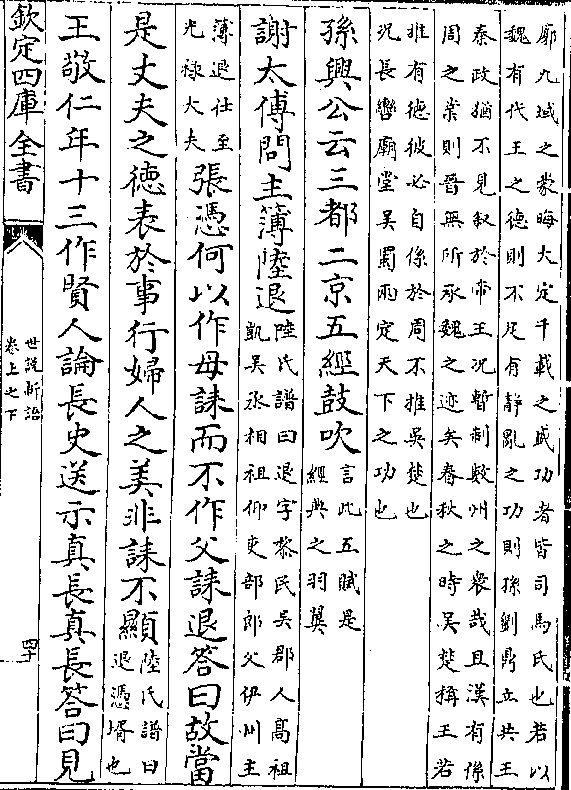 廓九域之蒙晦大定千載之盛功者皆司馬氏也若以
魏有代王之德則不足有靜亂之功則孫劉鼎立共王
秦政猶不見叙於帝王況暫制數州之衆哉且漢有係
周之業則晉無所承魏之迹矣春秋之時吳楚稱王若
推有德彼必自係於周不推吳楚也
況長轡廟堂吳蜀兩定天下之功也
孫興公云三都二京五經鼓吹
言此五賦是
經典之羽翼
謝太傅問主簿陸退
陸氏譜曰退字黎民吳郡人高祖
凱吳丞相祖仰吏部郎父伊州主
簿退仕至
光祿大夫
張憑何以作母誄而不作父誄退答曰故當
是丈夫之德表於事行婦人之美非誄不顯
陸氏譜曰
退憑壻也
王敬仁年十三作賢人論長史送示真長真長答曰見
欽定四庫全書
世說新語
卷上之下
四十